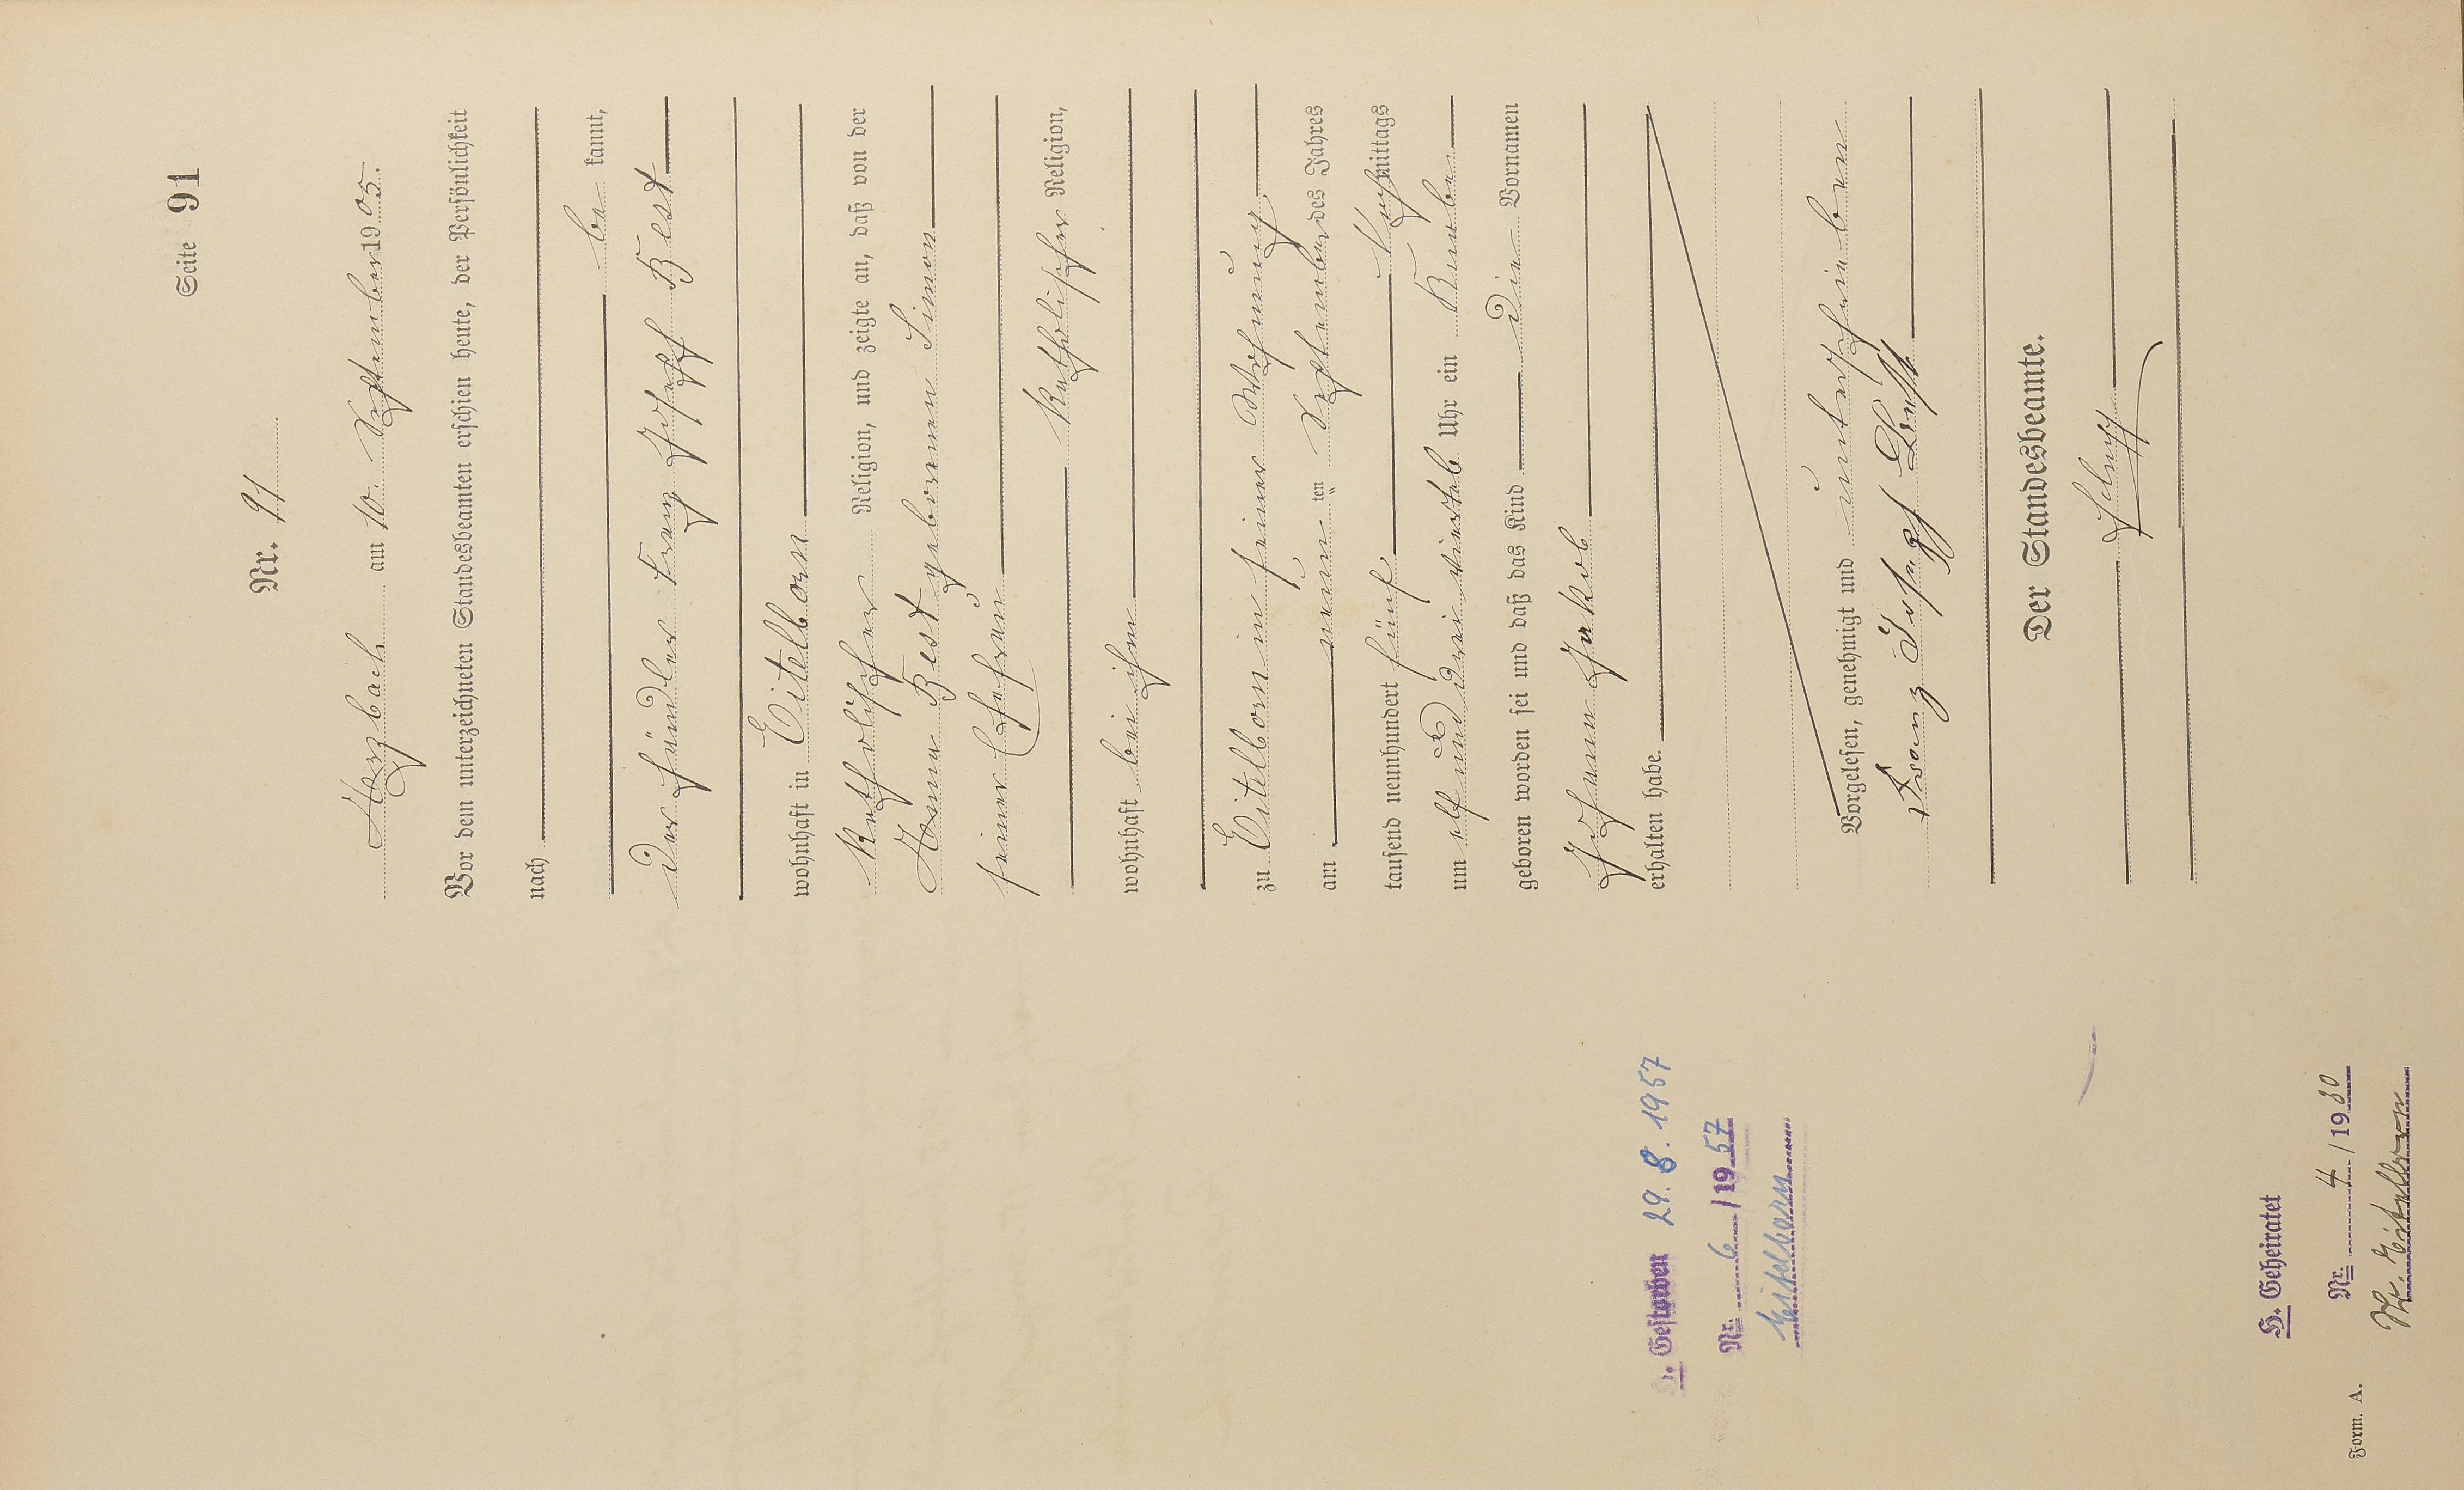 Seite 91
Nr. 91
Arzbach am 10. September 1905.
Vor dem unterzeichneten Standesbeamten erschien heute, der Persönlichkeit
nach
be kannt,
der Händler Franz Josef Best
wohnhaft in Eitelborn
katholischer Religion, und zeigte an, daß von der
Anna Best geborenen Simon
seiner Ehefrau
katholischer Religion,
wohnhaft bei ihm
zu Eitelborn in seiner Wohnung
am neun ten September des Jahres
tausend neunhundert fünf Vormittags
um elf und drei viertel Uhr ein Knabe
geboren worden sei und daß das Kind die Vornamen
Johann Jakob
erhalten habe.
Vorgelesen, genehmigt und unterschrieben
Franz Josepf Best
Der Standesbeamte.
Gestorben 29.8.1957
Nr. 6/1957
Eitelborn
H. Geheiratet
Nr. 4/1930
Eitelborn
Form. A.